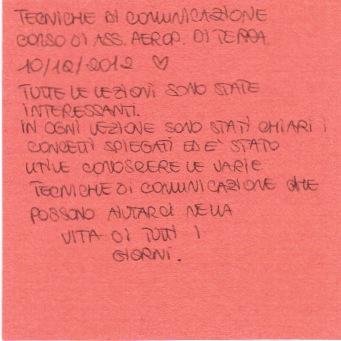 TECNICHE DI COMUNICAZIONE
CORSO DI ASS. AEROP. DI TERRA
10/12/2012 ♡
TUTTE LE LEZIONI SONO STATE
INTERESSANTI.
IN OGNI LEZIONE SONO STATI CHIARI I
CONCETTI SPIEGATI ED E' STATO
UTILE CONOSCERE LE VARIE
TECNICHE DI COMUNICAZIONE CHE
POSSONO AIUTARCI NELLA
VITA DI TUTTI I
GIORNI.